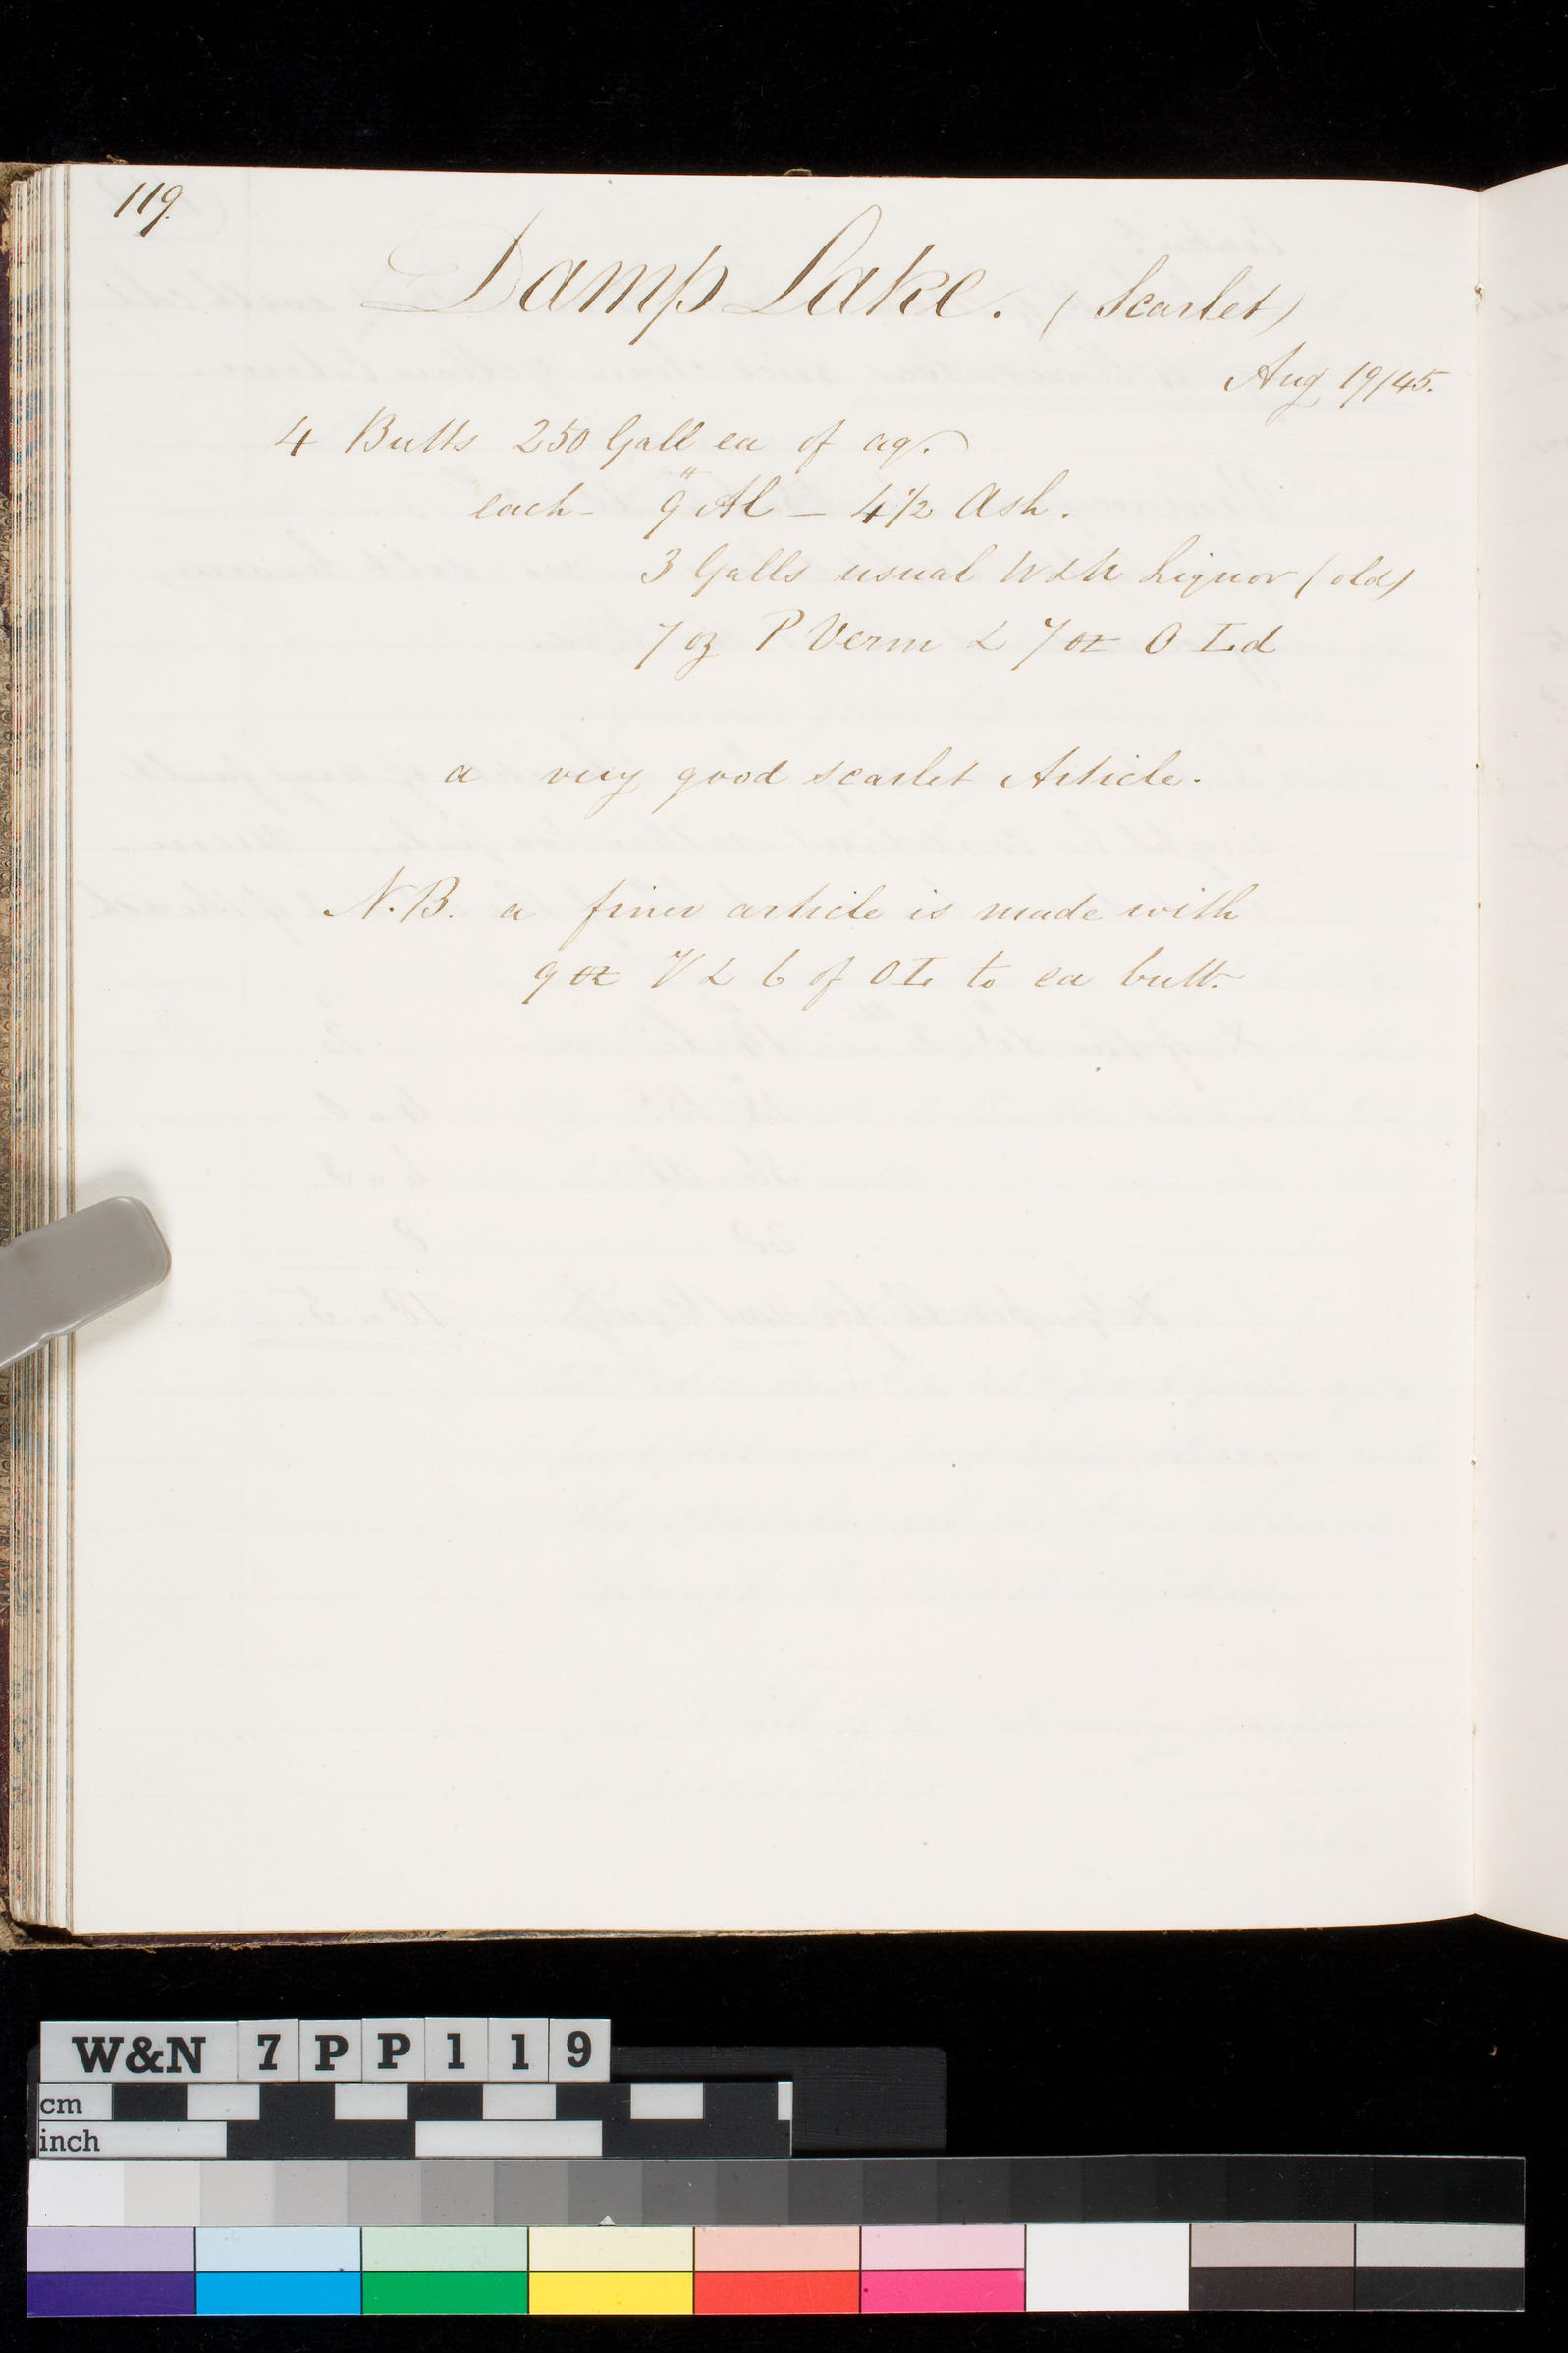 119.
Damp Lake. (Scarlet)
Aug 19/45.
4 Butts 250 Gall ea of aq.
each - 9" Al - 4 1/2 Ash.
3 Galls usual Liquor (old)
7 oz P Verm & 7 oz O Ld
a very good scarlet Article.
N.B. a finer article is made with
9 oz V & 6 of OL to ea butt.
W&N 7PP119
cm
inch